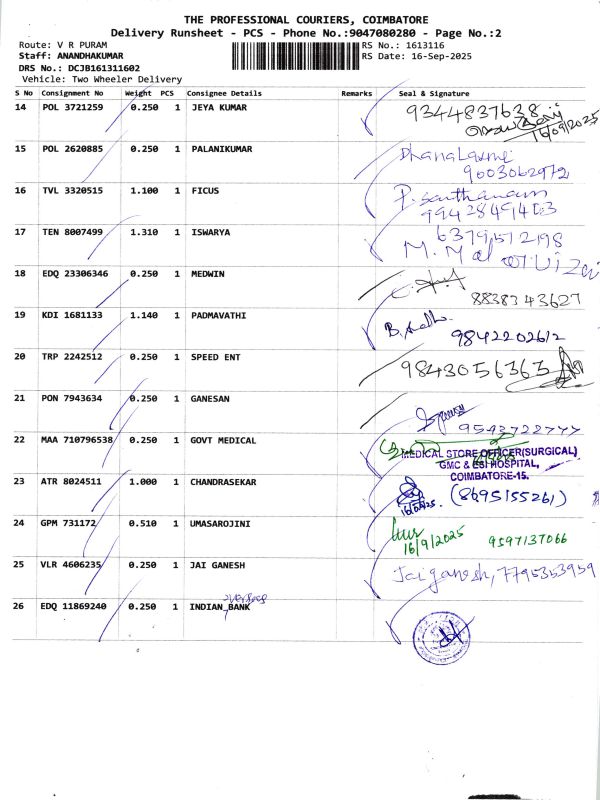 THE PROFESSIONAL COURIERS, COIMBATORE
Delivery Runsheet - PCS - Phone No.:9047080280 - Page No.:2
Route: V R PURAM RS No.: 1613116
Staff: ANANDHAKUMAR RS Date: 16-Sep-2025
DRS No.: DCJB161311602
Vehicle: Two Wheeler Delivery
S No Consignment No Weight PCS Consignee Details Remarks Seal & Signature
14 POL 3721259 0.250 1 JEYA KUMAR 9344837638
16/09/2025
15 POL 2620885 0.250 1 PALANIKUMAR DhanaLaxmi
9603062972
16 TVL 3320515 1.100 1 FICUS P. Santhanam
9942849403
17 TEN 8007499 1.310 1 ISWARYA 6379572198
18 EDQ 23306346 0.250 1 MEDWIN
8838343627
19 KDI 1681133 1.140 1 PADMAVATHI 9842202612
20 TRP 2242512 0.250 1 SPEED ENT 9843056363
21 PON 7943634 0.250 1 GANESAN
22 MAA 710796538 0.250 1 GOVT MEDICAL
MEDICAL STORE OFFICER(SURGICAL)
GMC & ESI HOSPITAL,
COIMBATORE-15.
23 ATR 8024511 1.000 1 CHANDRASEKAR (8695155261)
24 GPM 731172 0.510 1 UMASAROJINI
16/9/2025 9597137066
25 VLR 4606235 0.250 1 JAI GANESH Jai ganesh, 7795353959
26 EDQ 11869240 0.250 1 INDIAN BANK